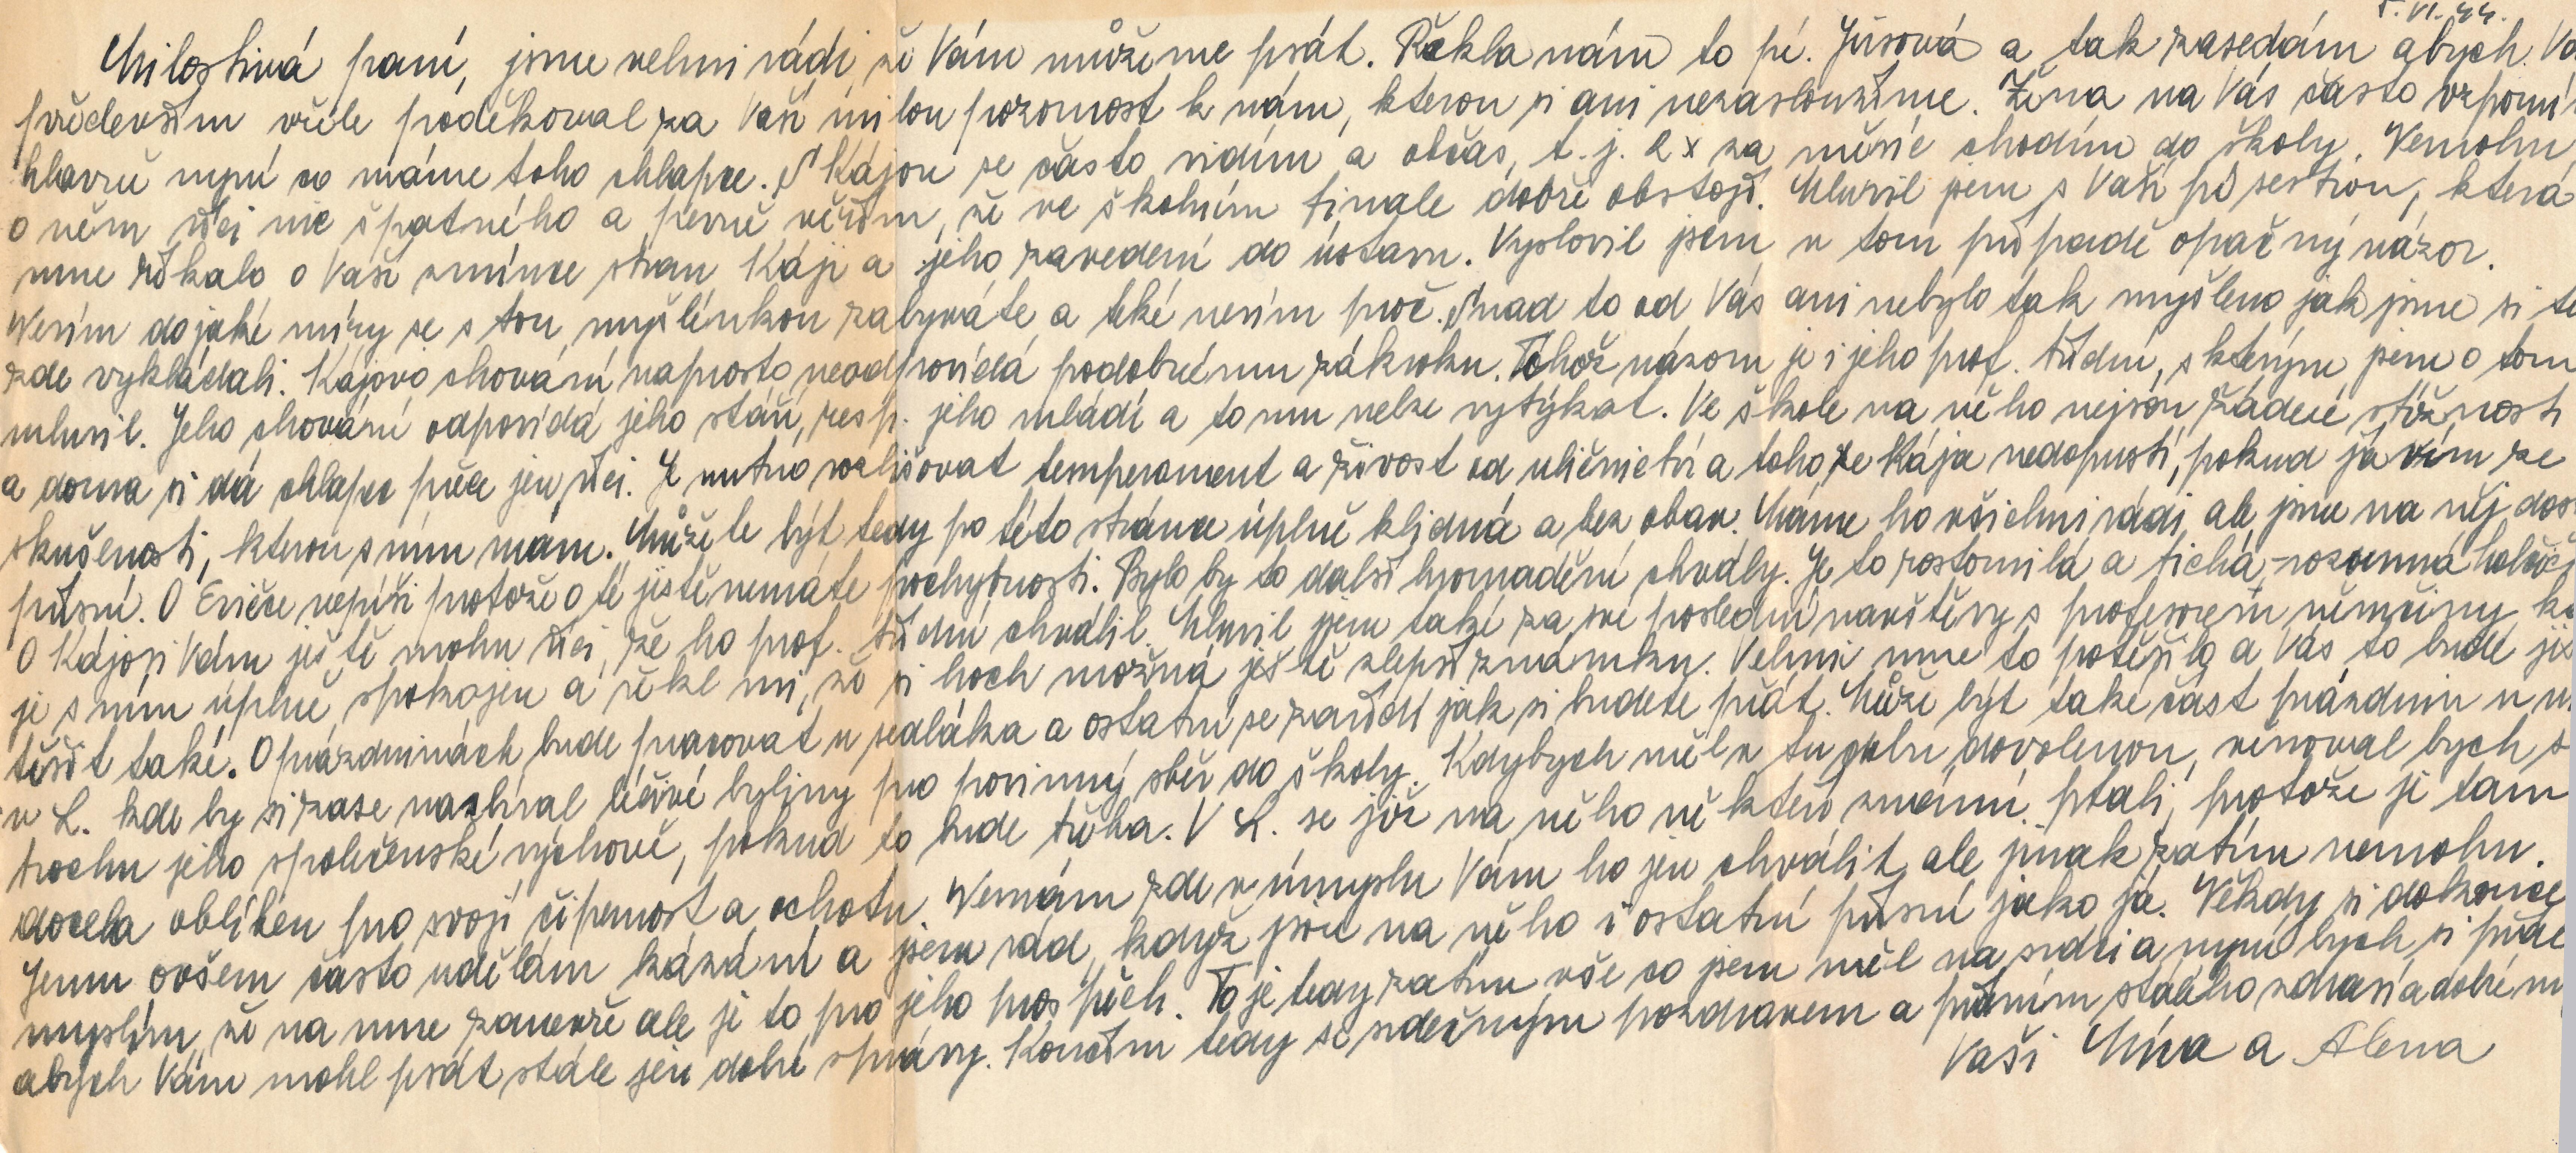 5. VI. 44.
Milostivá paní, jsme velmi rádi, že Vám můžeme psát. Řekla nám to pí. Jůsová a tak zasedám abych Vá
především vřele poděkoval za Vaší milou pozornost k nám, kterou si ani nezasloužíme. Žena na Vás často vzpomí
hlavně nyní co máme toho chlapce. S Kájou se často vidím a občas, t. j. 2x za měsíc chodím do školy. Nemohu
o něm říci nic špatného a pevně věřím, že ve školním finale dobře obstojí. Mluvil jsem s Vaší pí sestrou, která
mne říkala o Vaší zmínce stran Káji a jeho zavedení do ústavu. Vyslovil jsem v tom případě opačný názor.
Nevím do jaké míry se s tou myšlenkou zabýváte a také nevím proč. Snad to od Vás ani nebylo tak myšleno jak jsme si to
zde vykládali. Kájovo chování naprosto neodpovídá podobnému zákroku. Téhož názoru je i jeho prof. třídní, s kterým jsem o tom
mluvil. Jeho chování odpovídá jeho stáří, resp. jeho mládí a to mu nelze vytýkat. Ve škole na něho nejsou žádné stížnosti
a doma si dá chlapec přece jen říci. Je nutno rozlišovat temperament a živost od uličnictví a toho se Kája nedopustí, pokud já vím ze
zkušenosti, kterou s ním mám. Můžete být tedy po této stránce úplně klidná a bez obav. Máme ho všichni rádi, ale jsme na něj dost
přísní. O Evičce nepíši protože o té jistě nemáte pochybnosti. Bylo by to další hromadění chvály. Je to roztomilá a tichá, rozumná holčič
O Kájovi Vám ještě mohu říci, že ho prof. třídní chválil. Mluvil jsem také za své poslední návštěvy s profesorem němčiny, kt
je s ním úplně spokojen a řekl mi, že si hoch možná ještě zlepší známku. Velmi mne to potěšilo a Vás to bude jis
těšit také. O prázdninách bude pracovat u sedláka a ostatní se zařídí jak si budete přát. Může být také část prázdnin u n
v L. kde by si zase nazbíral léčivé byliny pro povinný sběr do školy. Kdybych měl v tu dobu dovolenou, věnoval bych s
trochu jeho společenské výchově, pokud to bude třeba. V L. se již na něho někteří známí ptali, protože je tam
docela oblíben pro svoji čipernost a ochotu. Nemám zde v úmyslu Vám ho jen chválit, ale jinak zatím nemohu.
Jemu ovšem často udělám kázání a jsem rád, když jsou na něho i ostatní přísní jako já. Někdy si dokonce
myslím, že na mne zanevře ale je to pro jeho prospěch. To je tedy zatím vše co jsem měl na srdci a nyní bych si přál
abych Vám mohl psát stále jen dobré zprávy. Končím tedy se srdečným pozdravem a přáním stálého zdraví a dobré m
Vaši Míra a Alena